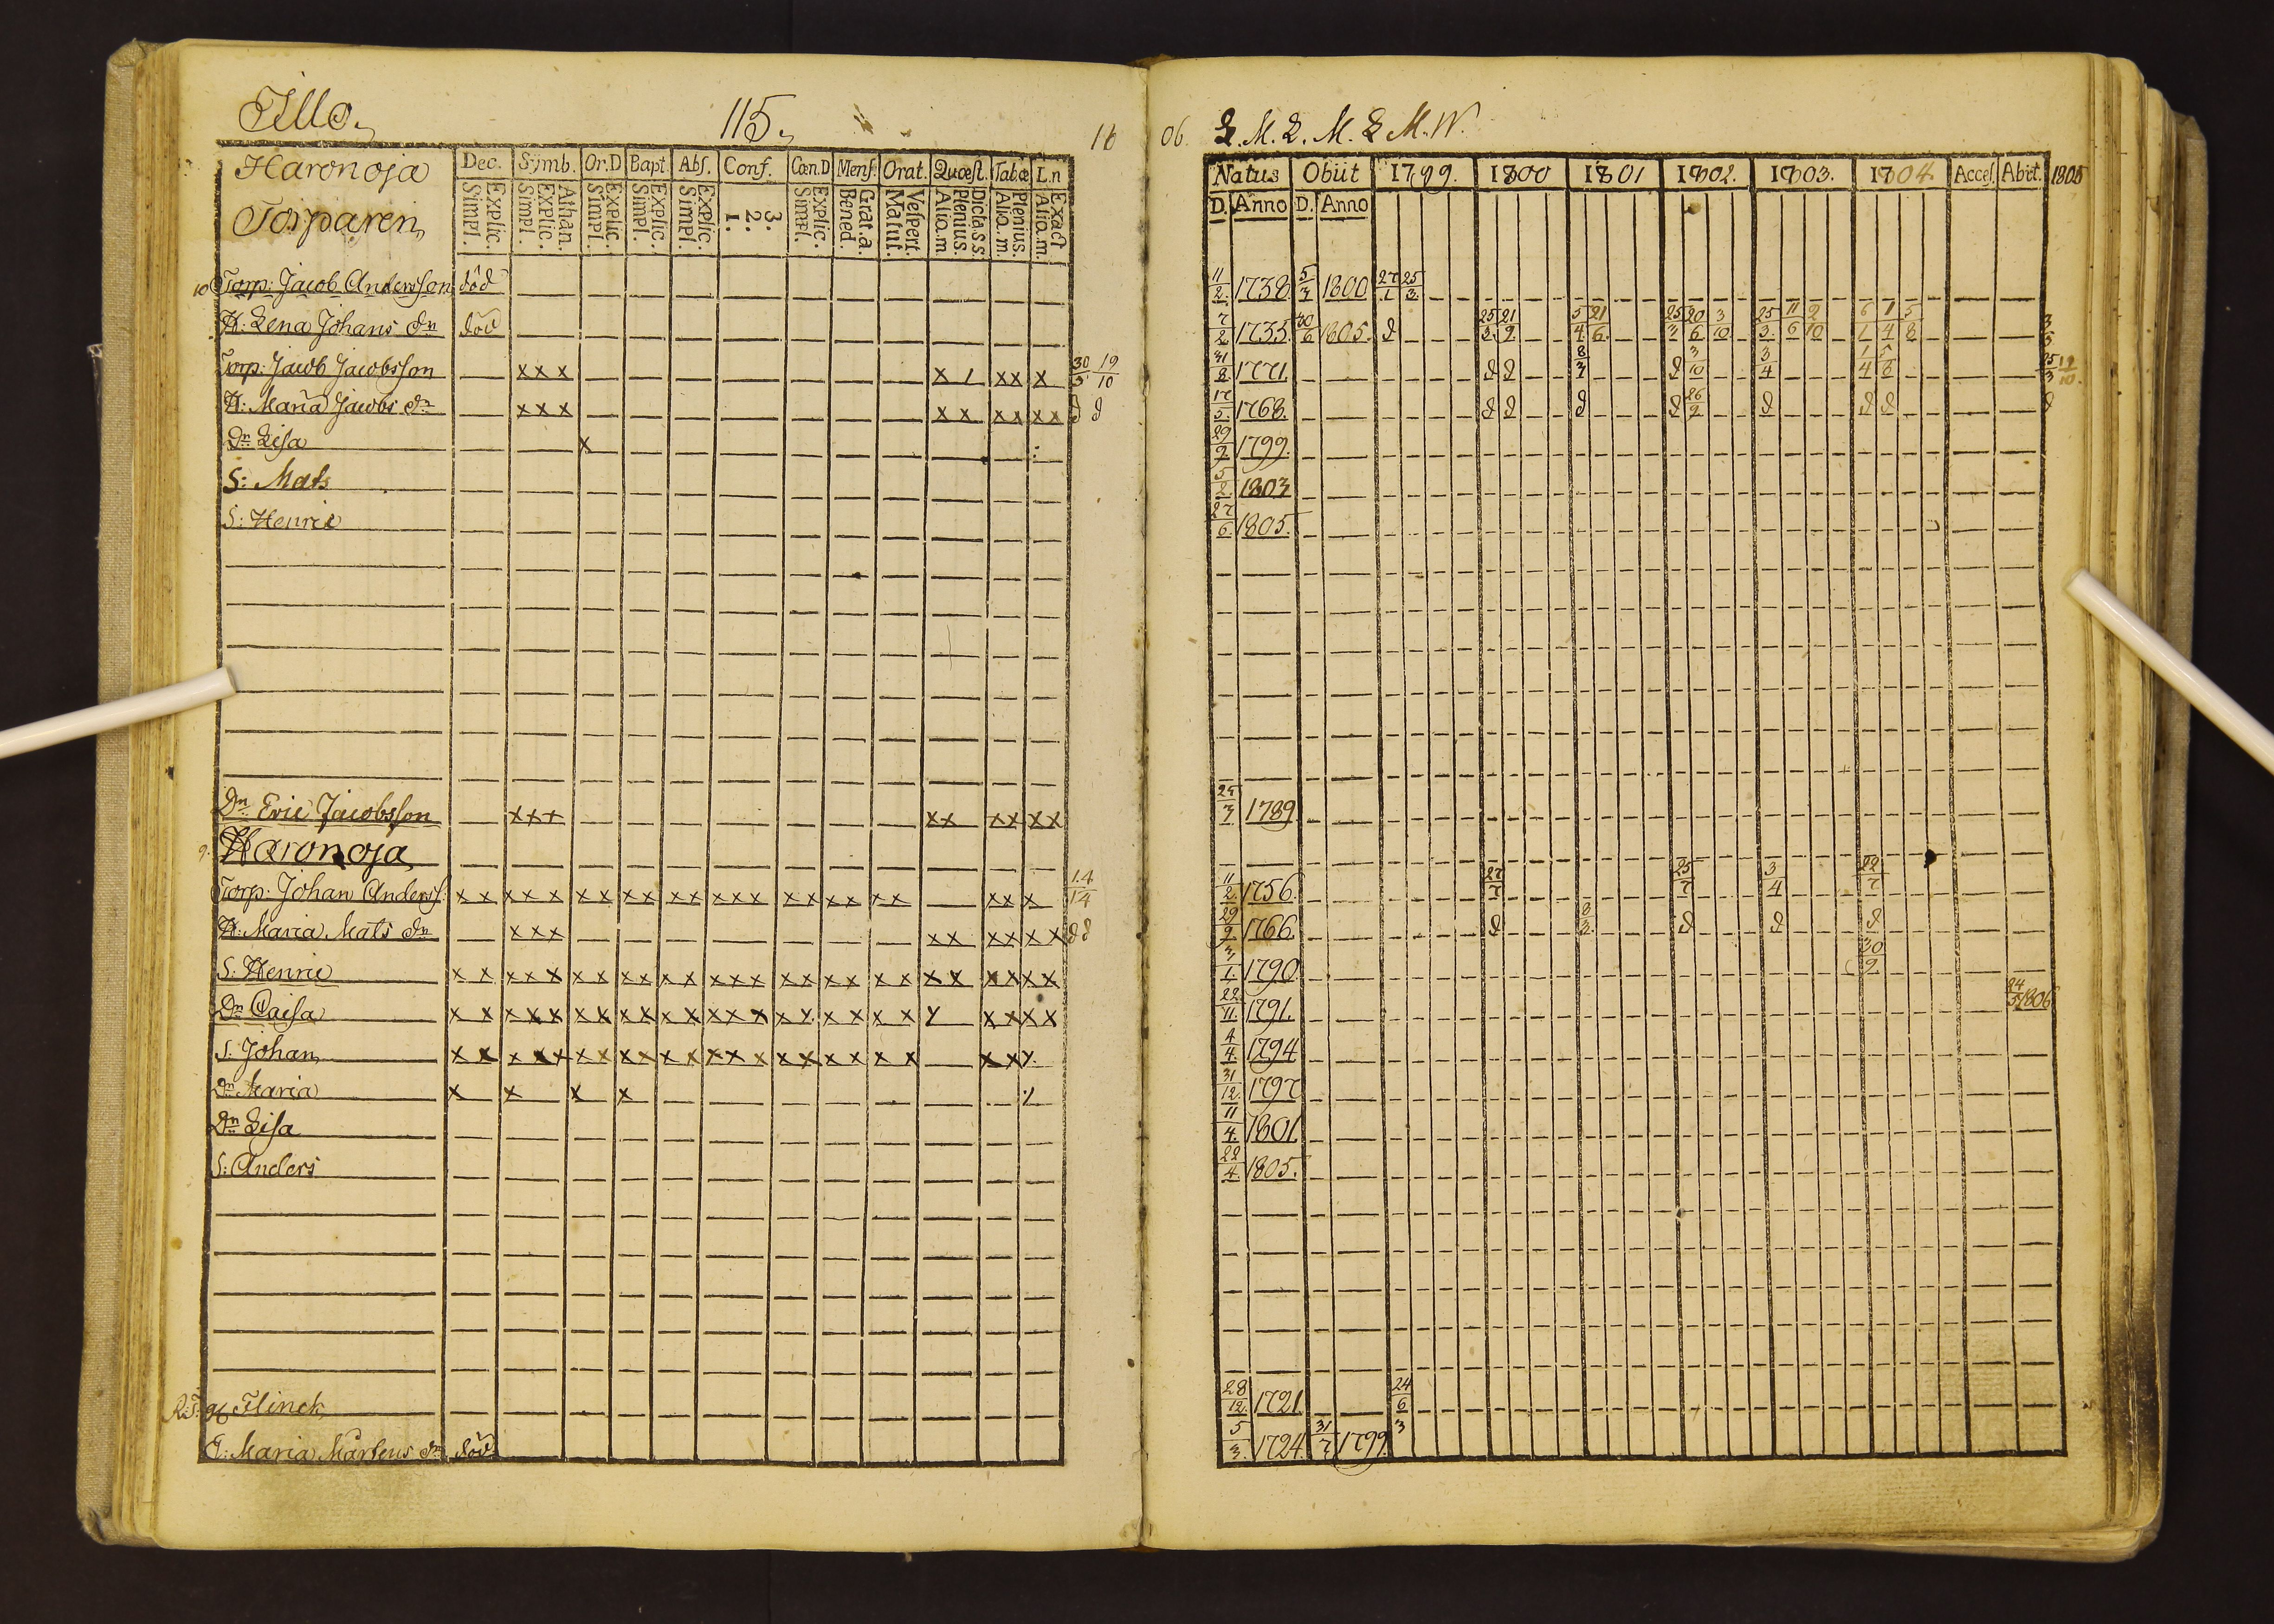 Tillo.
115.
18
06.
L. M. L. M. L M. W.
Haronoja
Torparen
Dec. Symb. Or.D Bapt. Abs. Conf. Cœn.D Mens. Orat. Quæst. Tabæ L.n
Explic. Simpl. Athan. Explic. Simpl. Explic. Simpl. Explic. Simpl. Explic. Simpl. 3. 2. 1. Explic. Simpl. Grat.a. Bened. Vespert. Matut. Dicta.s.s. Plenius. Aliq.m Plenius. Aliq.m. Exact Aliq.m.
Natus Obiit 1799. 1800 1801 1802. 1803. 1804 Acces. Abiit. 1805
D. Anno D. Anno
10 Torp: Jacob Andersson död 11/2. 1738. 5/3 1800 27/1 25/3.
H: Lena Johans dr död 7/2 1735. 30/6 1805. d 25/3. 21/9 5/4 21/6. 25/3 20/6 3/10 25/3. 11/6 2/10 6/1 1/4 5/8 3/3
Torp: Jacob Jacobsson x x x x / x x x 30/3 19/10 31/8 1771. d d 8/3 d 3/10 3/4 1/4 5/8 25/3 19/10.
H: Maria Jacobs dr x x x x x x x x x d d 17/5. 1768. d d d d 26/9 d d d d
Dr Lisa x 29/9. 1799.
S: Mats 5/2 1803
S: Henric 27/6 1805.
Dr Eric Jacobsson x x x x x x x x x 25/3 1789
9. Haronoja
Torp: Johan Anderss. x x x x x x x x x x x x x x x x x x x x x x x 14/14 11/2. 1756. 27/7 25/7 3/4 22/7
H: Maria Mats dr x x x x x x x x x d d 29/9 1766. d 8/3 d d d
S: Henric x x x x x x x x x x x x x x x x x x x x x x x x x x 3/1. 1790. 30/9
Dr Caisa x x x x x x x x x x x x x x x x x x x x x x x x x 22/11. 1791. 24/3 1806
S. Johan x x x x x x x x x x x x x x x x x x x x x x x 4/4. 1794
Dr Maria x x x x 31/12. 1797
Dr Lisa 11/4. 1801.
S: Anders 22/4. 1805.
Flinck 28/12. 1721. 24/6
E: Maria Mårtens dr död 5/3. 1724. 31/7 1799. 3